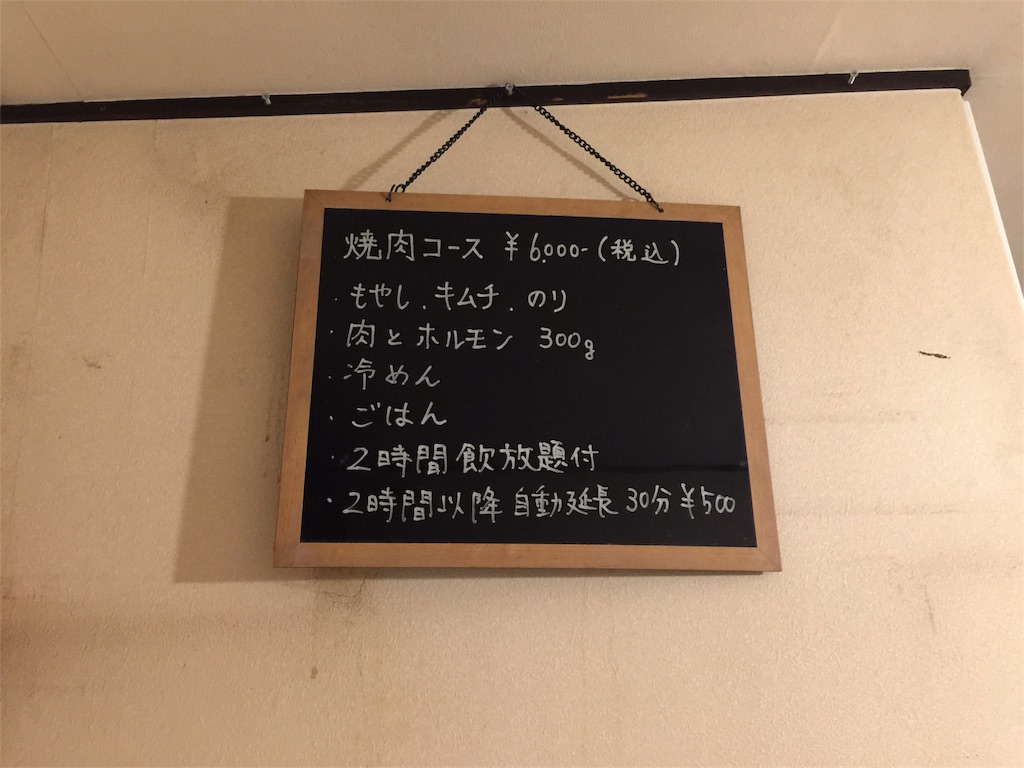 焼肉コース ¥6,000-(税込)
・もやし、キムチ、のり
・肉とホルモン 300g
・冷めん
・ごはん
・2時間飲放題付
・2時間以降自動延長 30分¥500